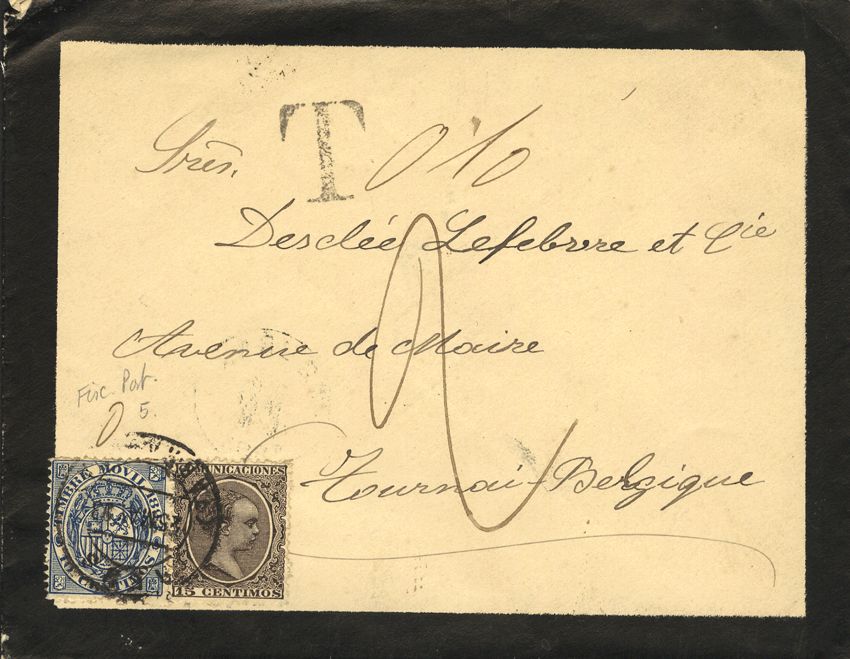 T
Sres. 0'10
Desclée Lefebvre et Cie
Avenue de Maire
Fisc Pat.
5.
Tournai-Belgique
TIMBRE MOVIL
COMUNICACIONES
15 CENTIMOS